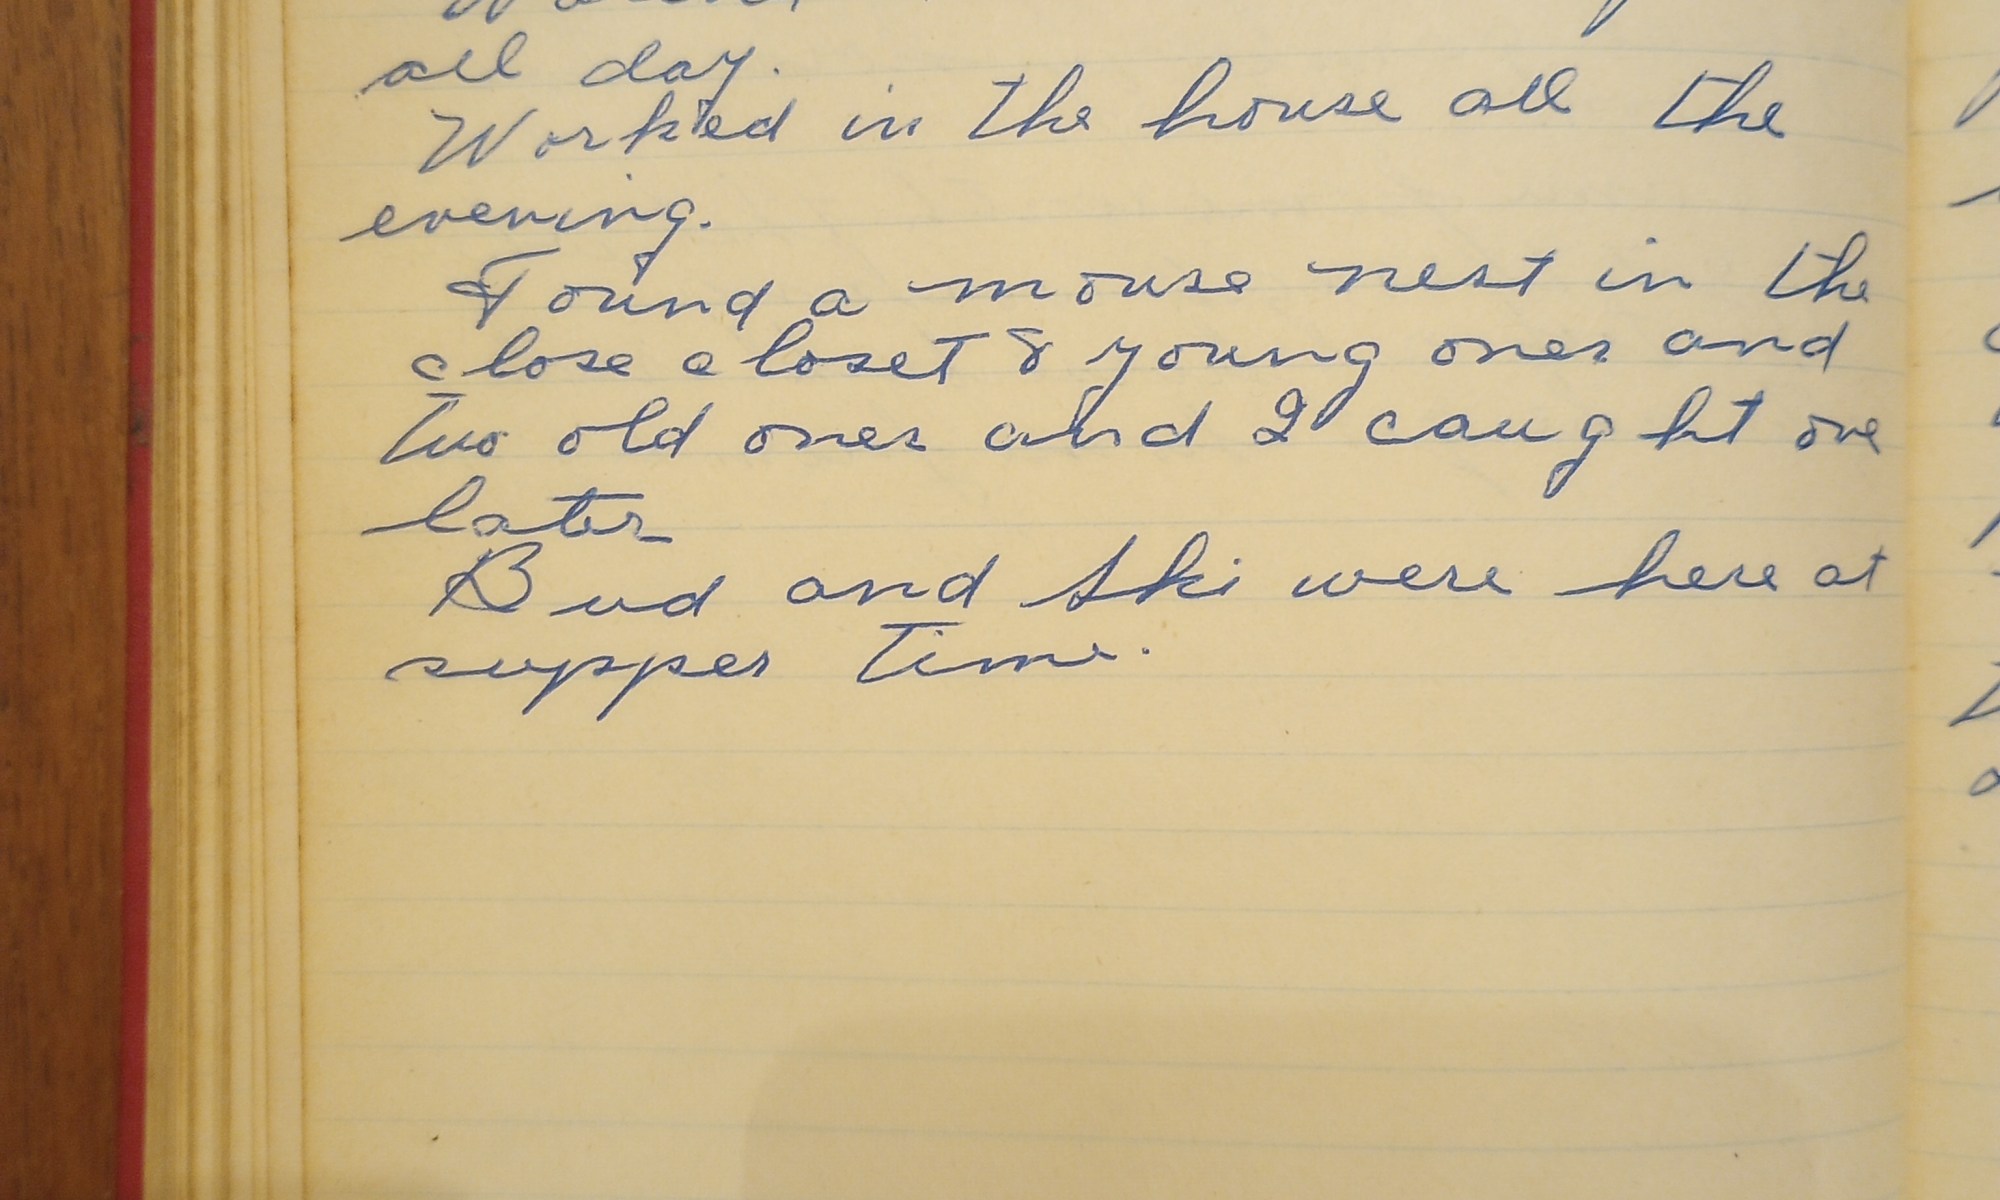 all day.
Worked in the house all the
evening.
Found a mouse nest in the
close closet 8 young ones and
two old ones and I caught one
later
Bud and Ski were here at
supper time.